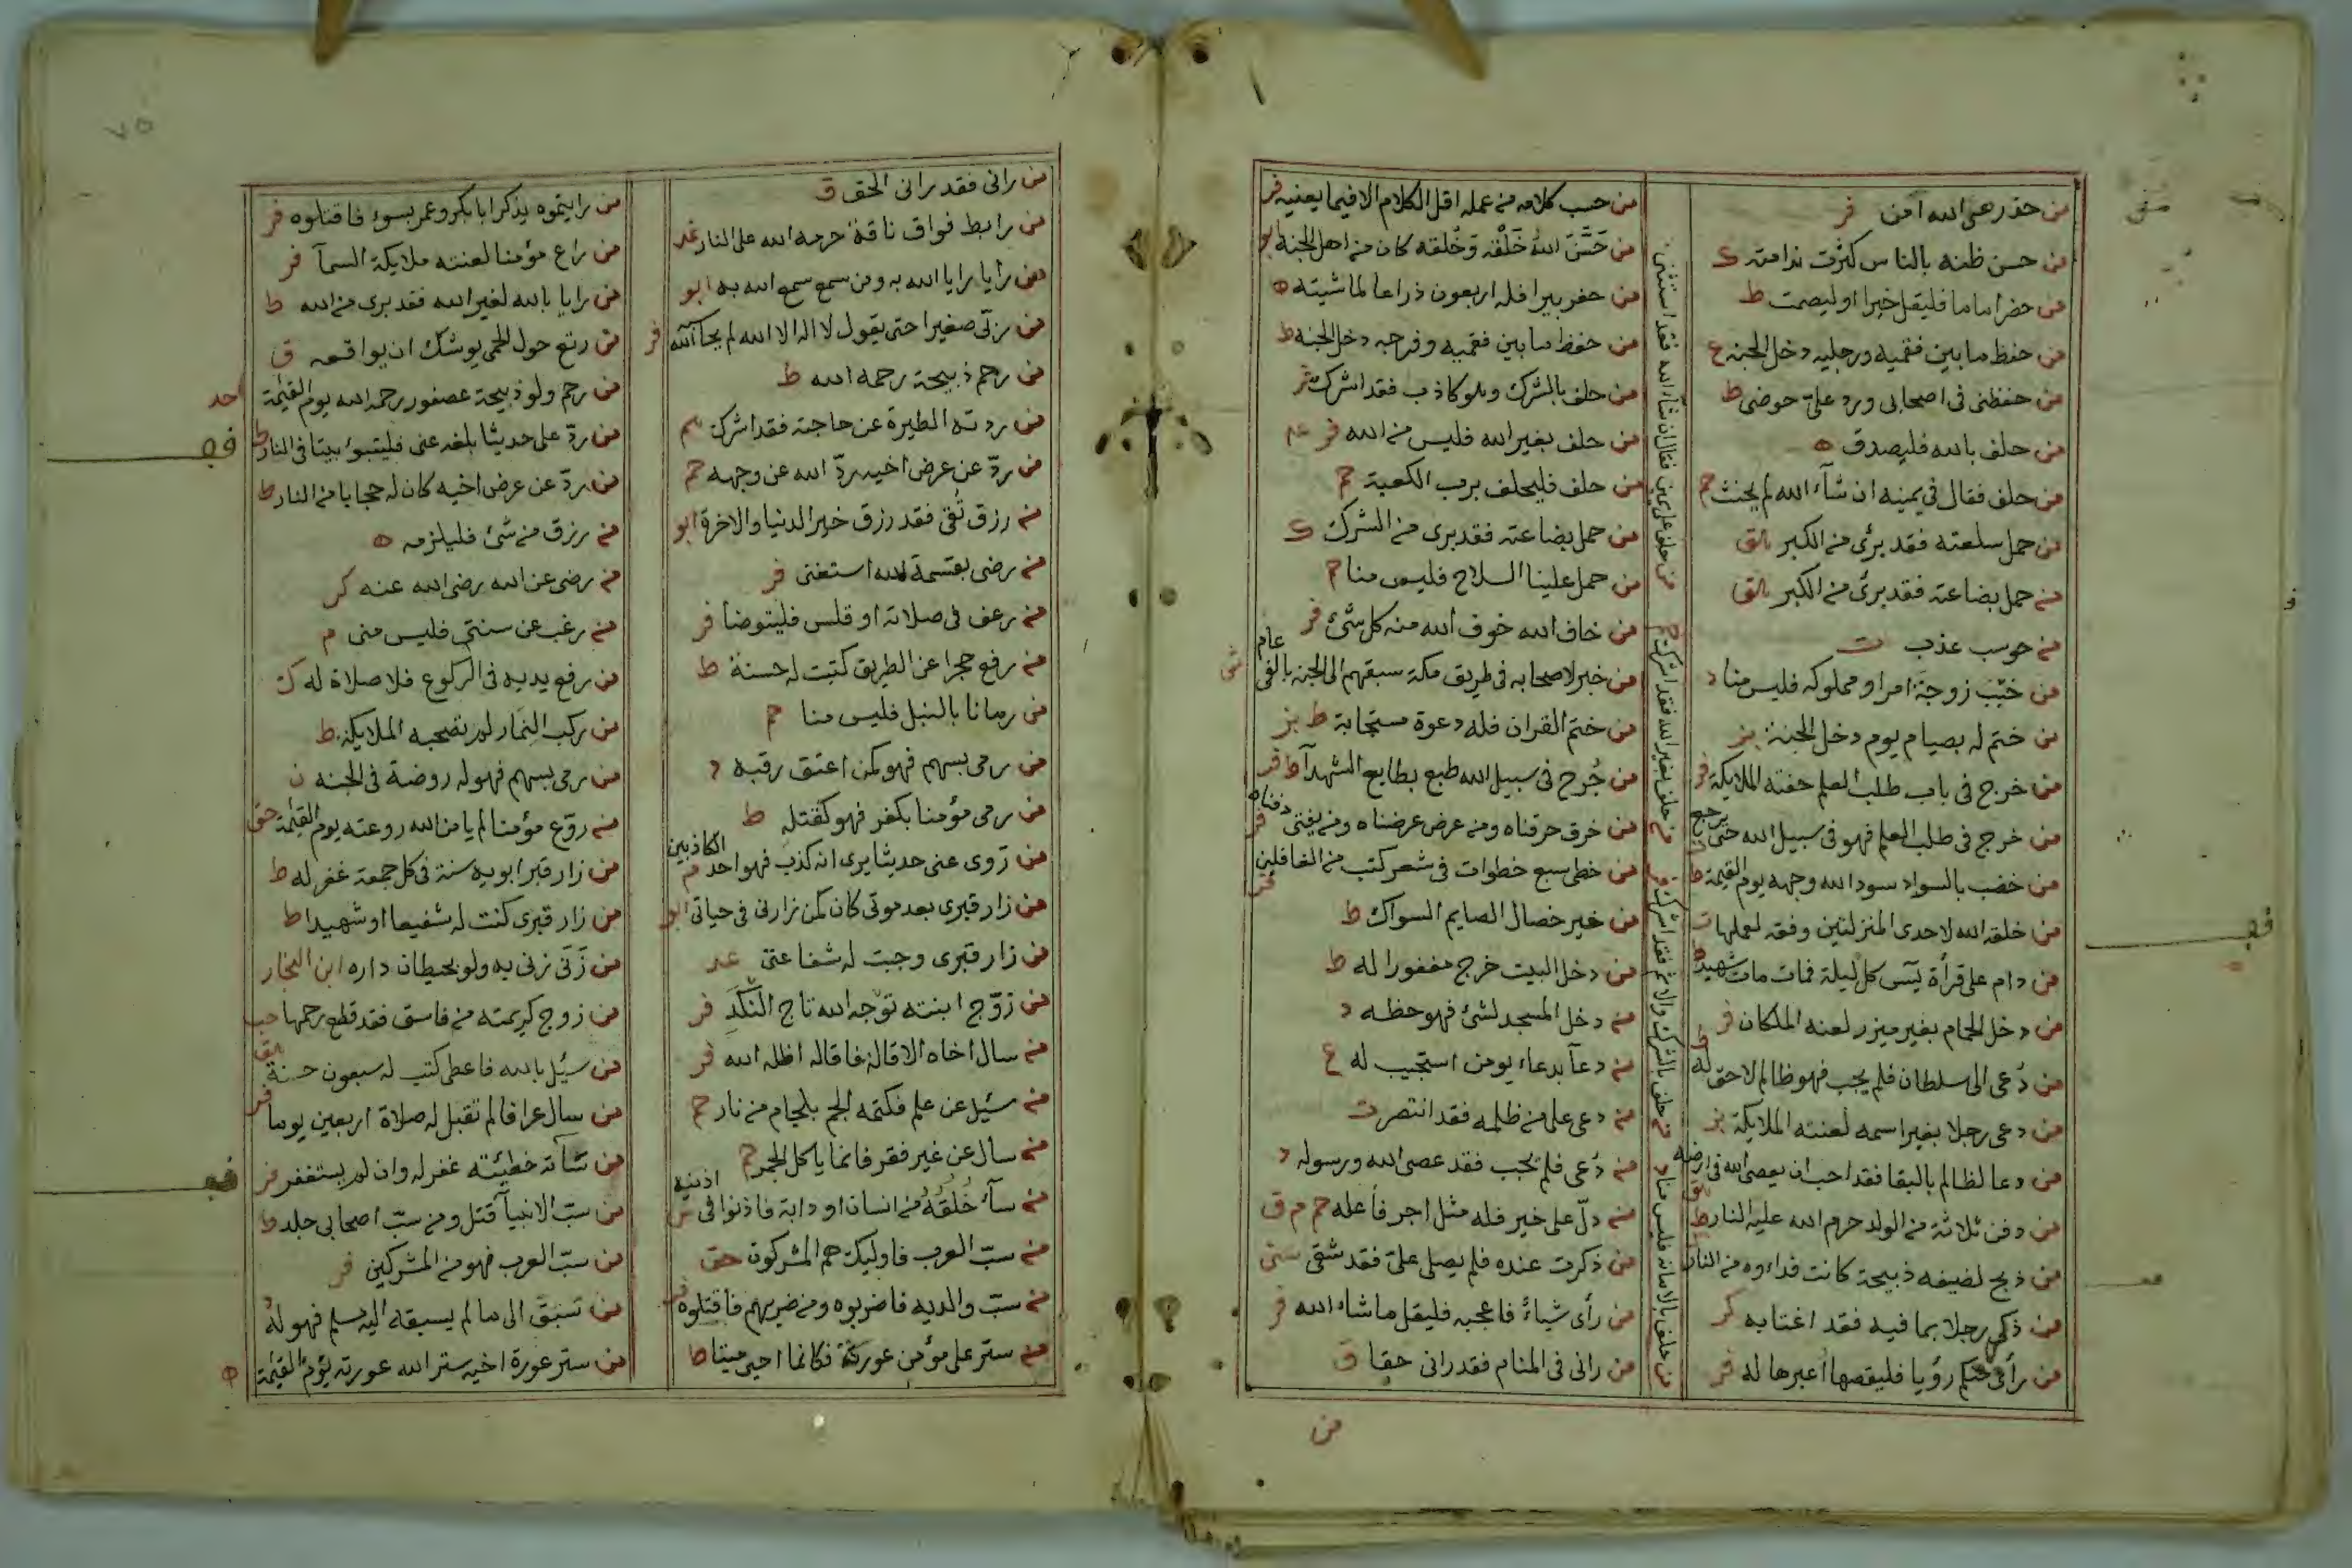 من حذر عن الله امن فر
من حسن ظنه بالناس كثرت ندامته ك
من حضر اماما فليقل خيرا او ليصمت ط
من حفظ ما بين فقميه ورجليه دخل الجنة ع
من حفظني في اصحابي ورد علي حوضي ط
من حلف بالله فليصدق ه
من حلف فقال في يمينه ان شآء الله لم يحنث حم
من حمل سلعته فقد برئ من الكبر
من حمل بضاعته فقد برئ من الكبر
من حوسب عذب ت
من خبب زوجة امرا ومملوكه فليس منا د
من ختم له بصيام يوم دخل الجنة بز
من خرج في باب طلب العلم حفته الملايكة فر
من خرج في طلب العلم فهو في سبيل الله حتى يرجع
من خضب بالسواد سود الله وجهه يوم القيمة ط
من خلقه الله لاحدى المنزلتين وفقه لعملها
من دام على قرأة يس كل ليلة فمات مات شهيدا ط
من دخل الحمام بغير ميزر لعنه الملكان فر
من دعى الى سلطان فلم يجب فهو ظالم لا حق له
من دعى رجلا بغير اسمه لعنته الملايكة بز
من دعا لظالم بالبقا فقد احب ان يعصى الله في ارضه
من دفن ثلاثة من الولد حرم الله عليه النار ط
من ذبح لضيفه ذبيحة كانت فداءوه من النار
من ذكر رجلا بما فيه فقد اغتابه كر
من رأى منكم رؤيا فليقصها اعبرها له فر
من حلف على يمين فقال ان شاء الله فقد استثنى
من حلف بغير الله فقد اشرك حم
من حلف بالشرك والاثم فقد اشرك فر
من حلف بالامانة فليس منا د
من حسب كلامه من عمله اقل الكلام الا فيما يعنيه فر
من حَسَّنَ اللهُ خَلْقَه وخُلقه كان من اهل الجنة ابو
من حفر بيرا فله اربعون ذراعا لماشيته ه
من حفظ ما بين فقميه وفرجه دخل الجنة ط
من حلف بالشرك وهو كاذب فقد اشرك فر
من حلف بغير الله فليس من الله فر
من حلف فليحلف برب الكعبة حم
من حمل بضاعته فقد برى من الشرك ك
من حمل علينا السلاح فليس منا م
من خاف الله خوف الله منه كل شئ فر
من خبر لاصحابه في طريق مكة سبقهم الى الجنة بالفى عام
من ختم القران فله دعوة مستجابة ط بز
من جُرح في سبيل الله طبع بطابع الشهدآ ط فر
من خرق حرقناه ومن عرض عرضناه ومن يفتى دفناه
من خطى سبع خطوات في شعر كتب من الغافلين فر
من خير خصال الصايم السواك ط
من دخل البيت خرج مغفورا له ط
من دخل المسجد لشئ فهو حظه د
من دعآ بدعاء يومن استجيب له ع
من دعى على من ظلمه فقد انتصر ت
من دُعى فلم يجب فقد عصى الله ورسوله د
من دلّ على خير فله مثل اجر فاعله حم م ق
من ذكرت عنده فلم يصلى علىّ فقد شقى سنى
من رأى شياءً فاعجبه فليقل ما شاء الله فر
من رانى فى المنام فقد رانى حقا ق
من
٧٥
من رانى فقد رانى الحق ق
من رابط فواق ناقة حرمه الله على النار عد
من رايا رايا الله به ومن سمع سمع الله به ابو
من ربّى صغيرا حتى يقول لا اله الا الله لم يحاسبه الله فر
من رحم ذبيحة رحمه الله ط
من ردته الطيرة عن حاجته فقد اشرك حم
من ردّ عن عرض اخيه ردّ الله عن وجهه حم
من رزق تُقى فقد رزق خير الدنيا والاخرة ابو
من رضى بقسمة الله استغنى فر
من رعف فى صلاته او قلس فليتوضأ فر
من رفع حجرا عن الطريق كتبت له حسنة ط
من رمانا بالنبل فليس منا حم
من رمى بسهم فهو كمن اعتق رقبة د
من رمى مؤمنا بكفر فهو كقتله ط
من رَوى عنى حديثا يرى انه كذب فهو احد الكاذبين م
من زار قبرى بعد موتى كان كمن زارنى فى حياتى ابو
من زار قبرى وجبت له شفاعتى عد
من زوّج ابنته توّجه الله تاج النَّكَدِ فر
من سال اخاه الاقالة فاقاله اظله الله فر
من سئيل عن علم فكتمه الجم بلجام من نار حم
من سال عن غير فقر فانما ياكل الجمر حم
من سآء خُلقُهُ من انسان او دابة فاذنوا فى اذنيه
من سبّ العرب فاوليك هم المشركون حق
من سبّ والديه فاضربوه ومن ضربهم فاقتلوه فر
من ستر على مؤمن عورة فكانما احيى ميتا ط
من رايتموه يذكر ابا بكر وعمر بسوء فاقتلوه فر
من راع مؤمنا لعنته ملايكة السمآ فر
من رايا بالله لغير الله فقد برى من الله ط
من رتع حول الحمى يوشك ان يواقعه ق
من رحم ولو ذبيحة عصفور رحمه الله يوم القيمة
من ردّ على حديثا بلغه عنى فليتبوء بيتا فى النار ط
من ردّ عن عرض اخيه كان له حجابا من النار ط
من رزق من شئ فليلزمه ه
من رضى عن الله رضى الله عنه كر
من رغب عن سنتى فليس منى م
من رفع يديه فى الركوع فلا صلاة له ك
من ركب النمار لم تصحبه الملايكة ط
من رمى بسهم فهو له روضة فى الجنة ن
من روّع مؤمنا لم يامن الله روعته يوم القيمة حق
من زار قبر ابويه سنة فى كل جمعة غفر له ط
من زار قبرى كنت له شفيعا او شهيدا ط
من زَنَى زنى به ولو بحيطان داره ابن النجار
من زوج كريمته من فاسق فقد قطع رحمها حب
من سئيل بالله فاعطى كتب له سبعون حسنة
من سال عرافا لم تقبل له صلاة اربعين يوما
من سآته خطيئته غفر له وان لم يستغفر فر
من سبّ الانبيآ قتل ومن سبّ اصحابى جلد ط
من سبّ العرب فهو من المشركين فر
من سَبَقَ الى ما لم يسبقه اليه مسلم فهو له د
من ستر عورة اخيه ستر الله عورته يوم القيمة ه